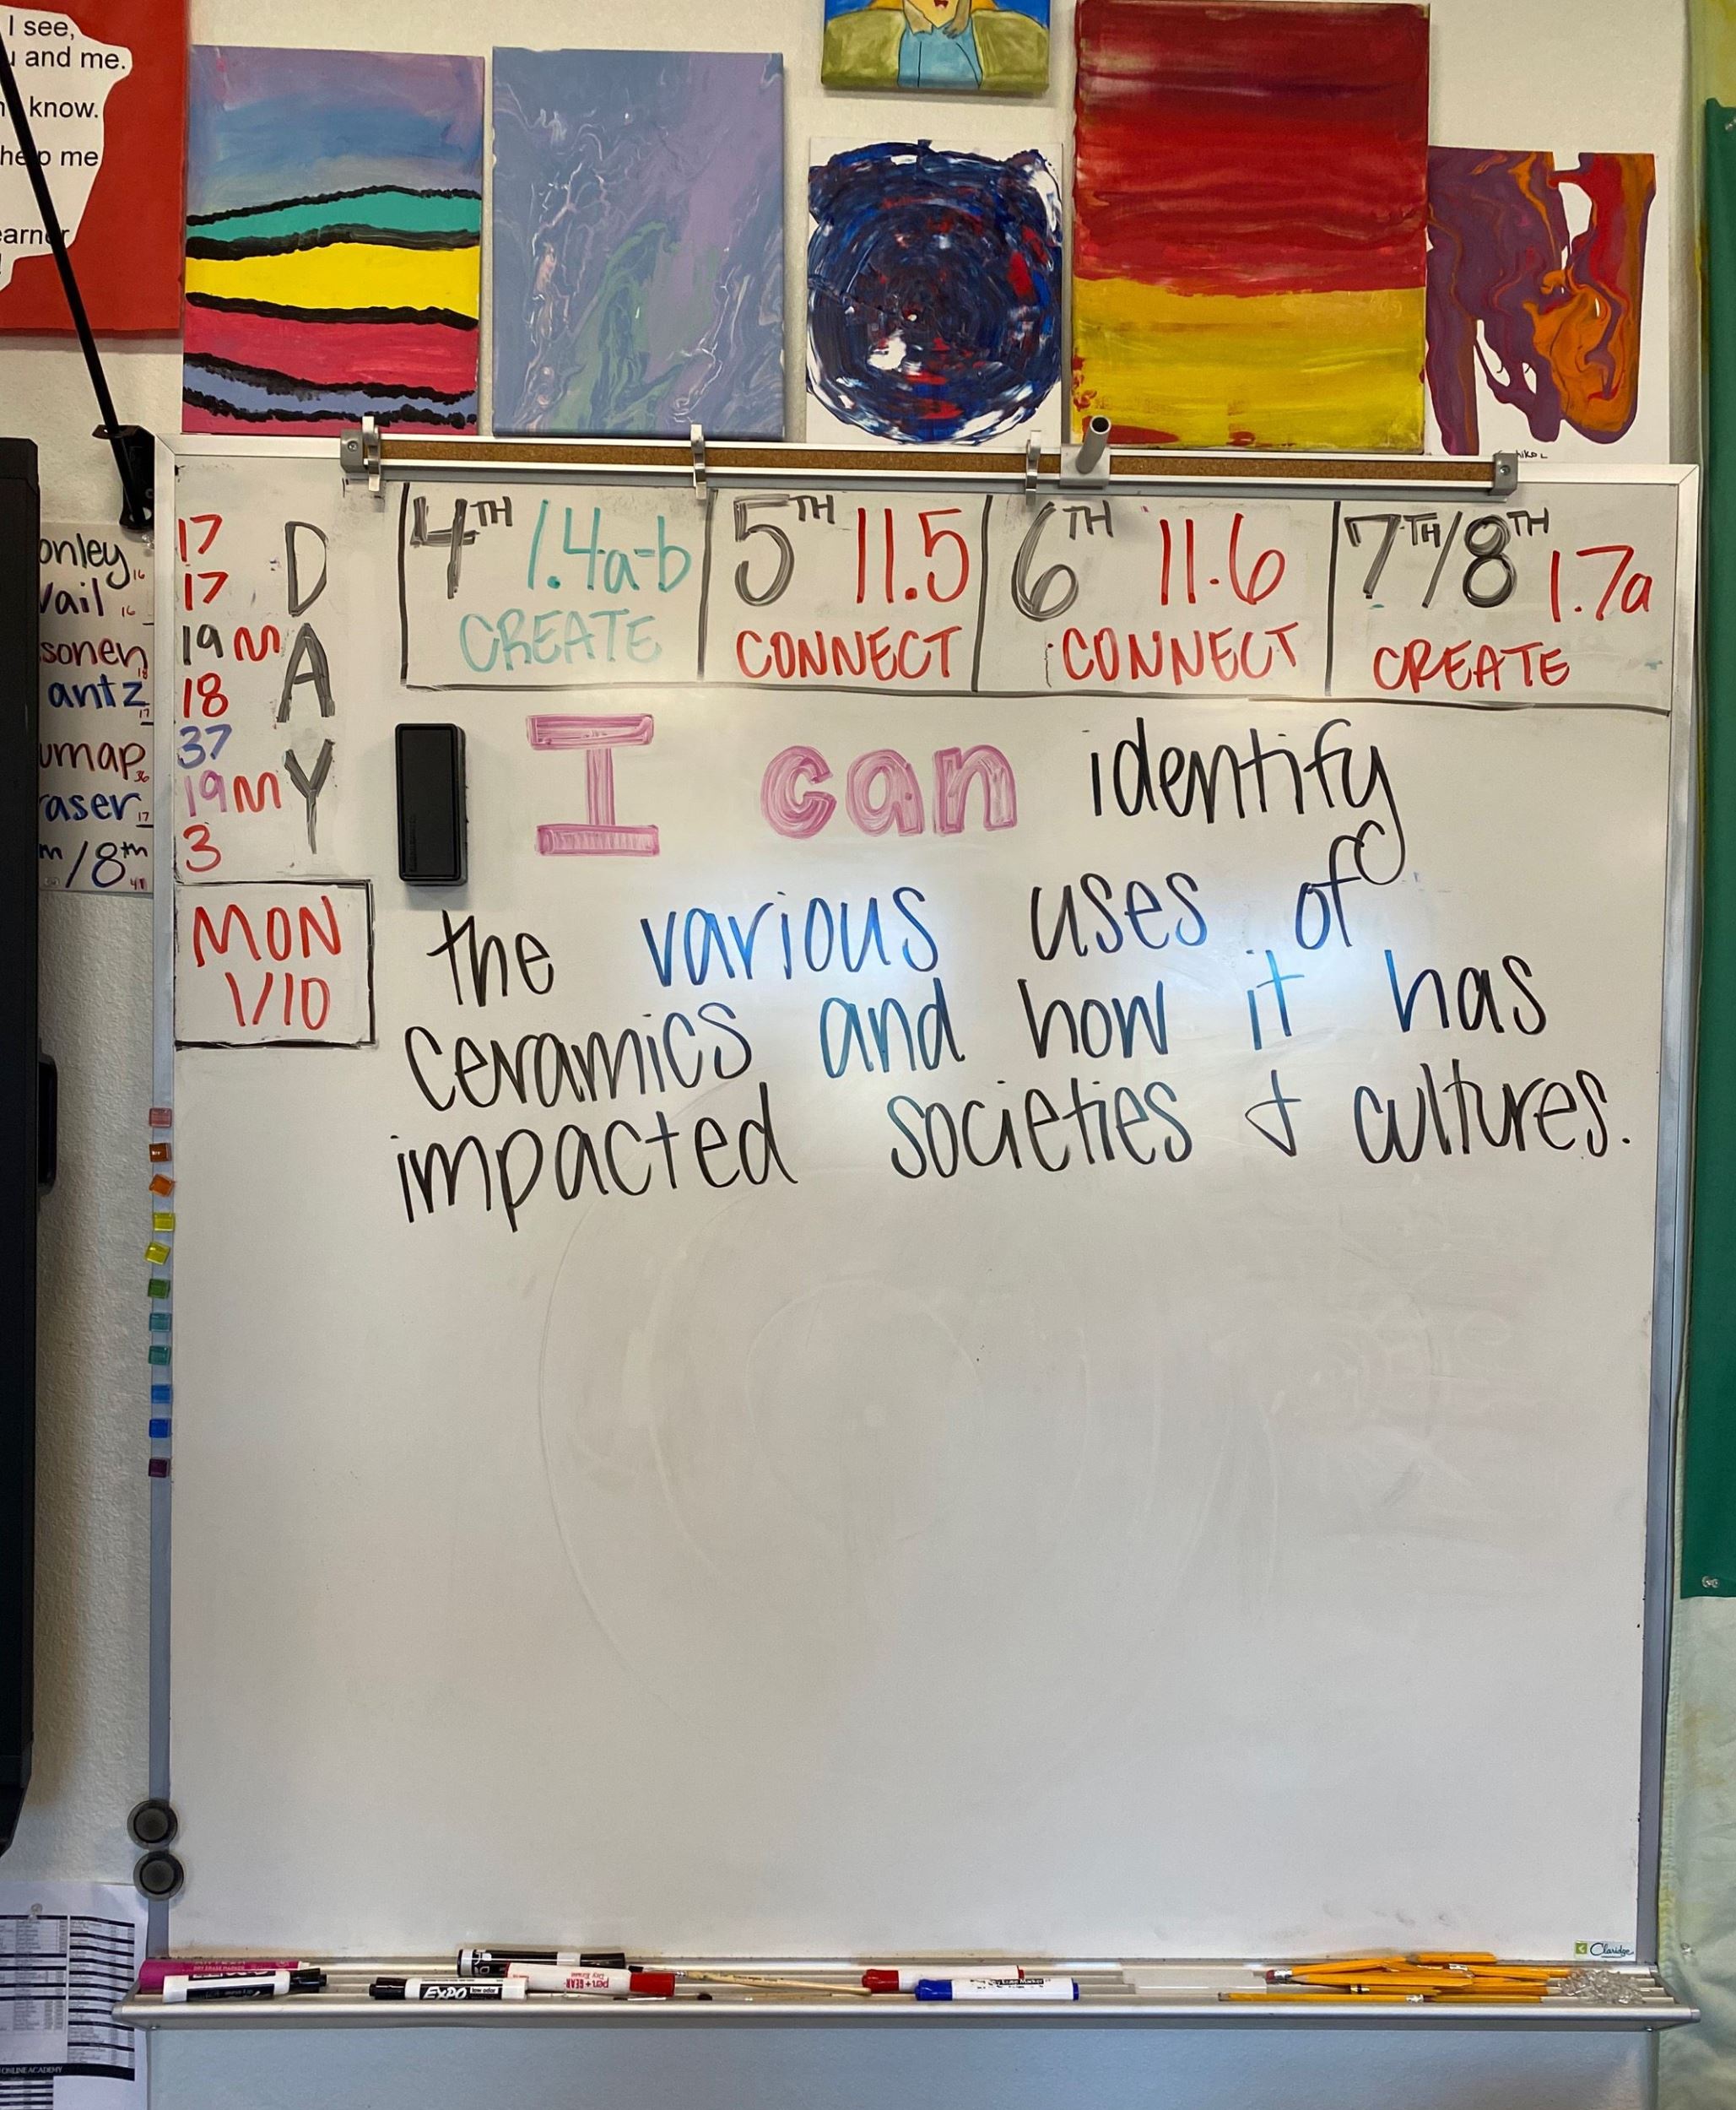 I see,
and me.
know.
help me
onley 16
Vail 16
sonen 18
antz 17
umap 36
raser 17
/8th 41
17
17
19 M
18
37
19 M
3
DAY
MON
1/10
4TH 1.4a-b
CREATE
5TH 11.5
CONNECT
6TH 11.6
CONNECT
7TH/8TH 1.7a
CREATE
I can identify
the various uses of
ceramics and how it has
impacted societies & cultures.
Claridge
EXPO low odor
PEN+GEAR
ONLINE ACADEMY